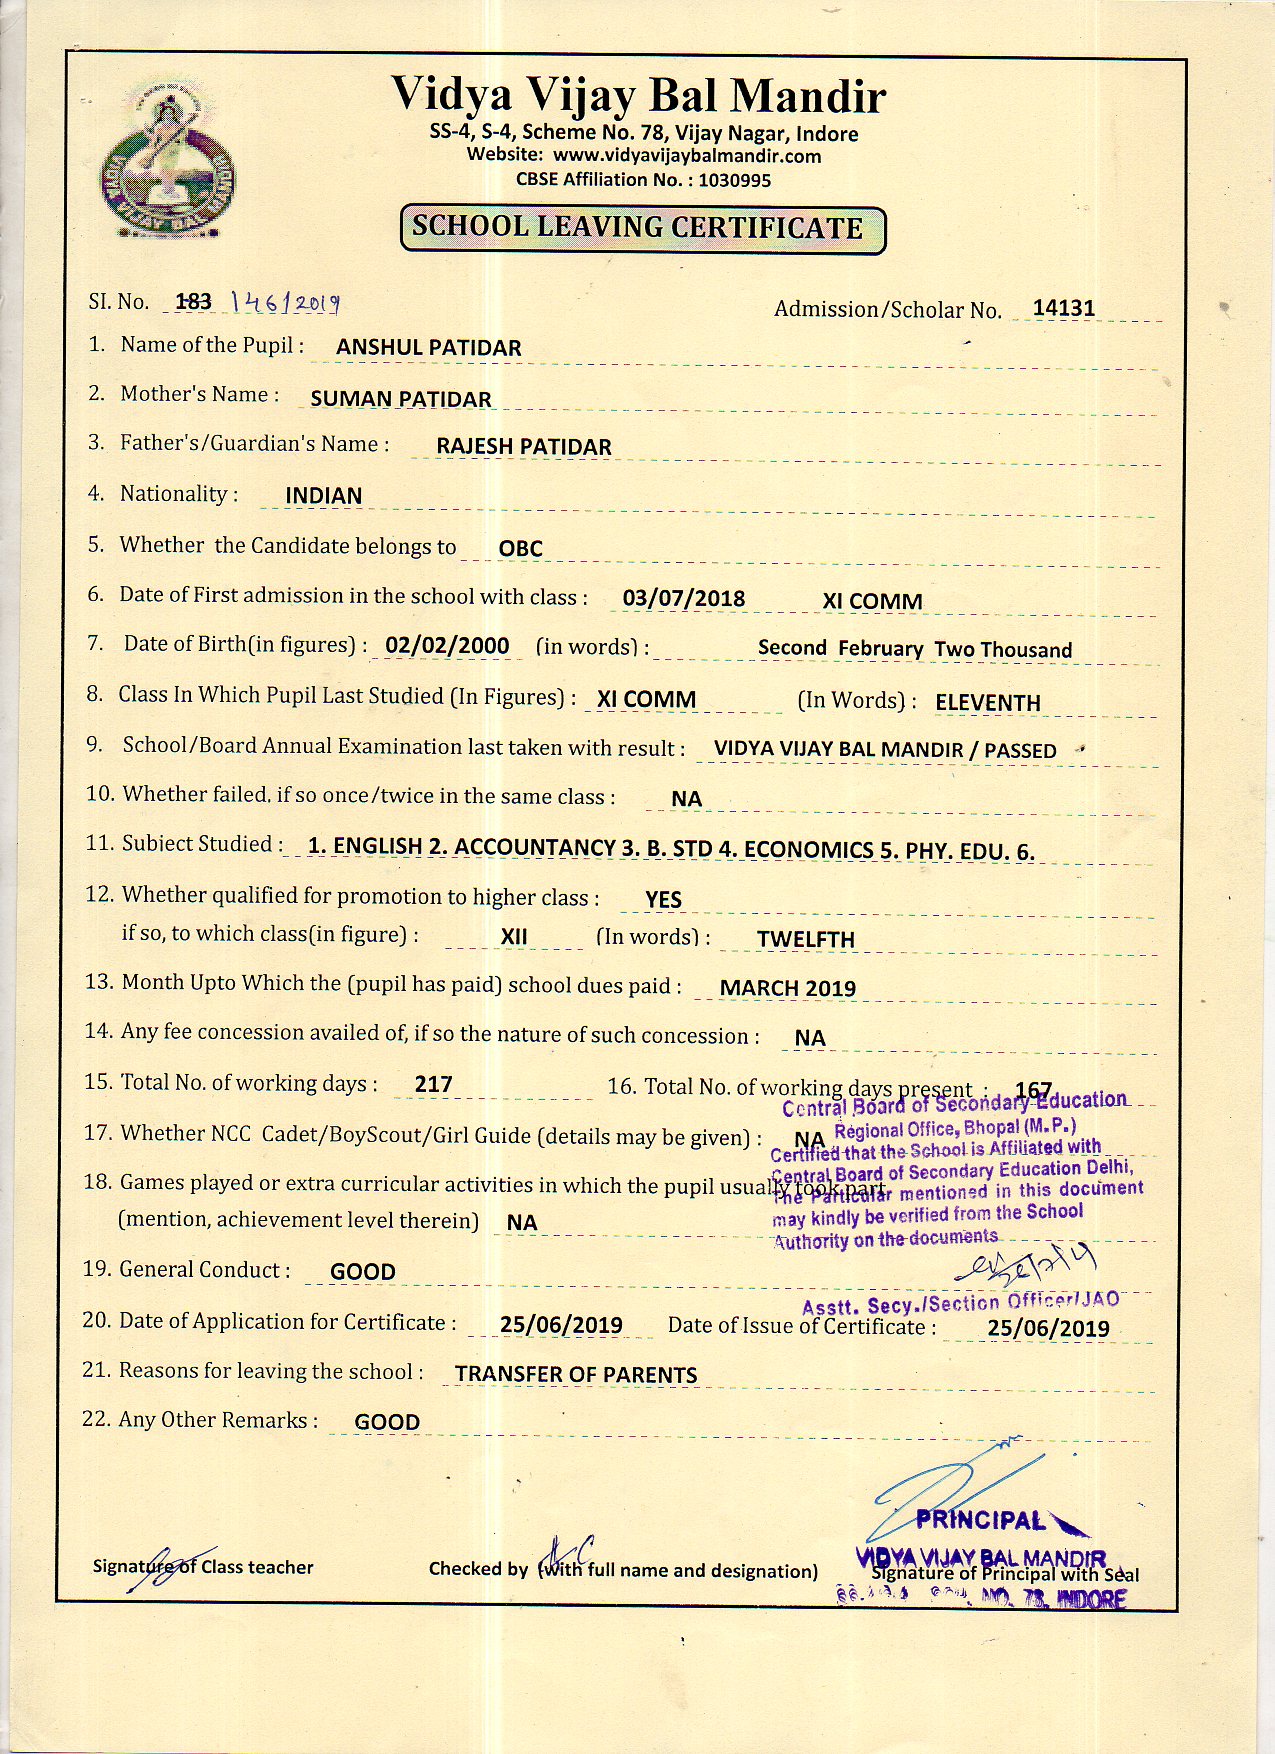 Vidya Vijay Bal Mandir
SS-4, S-4, Scheme No. 78, Vijay Nagar, Indore
Website: www.vidyavijaybalmandir.com
CBSE Affiliation No. : 1030995
VIDYA VIJAY BAL MANDIR
SCHOOL LEAVING CERTIFICATE
SI. No. 183 146/2019 Admission/Scholar No. 14131
1. Name of the Pupil : ANSHUL PATIDAR
2. Mother's Name : SUMAN PATIDAR
3. Father's/Guardian's Name : RAJESH PATIDAR
4. Nationality : INDIAN
5. Whether the Candidate belongs to OBC
6. Date of First admission in the school with class : 03/07/2018 XI COMM
7. Date of Birth(in figures) : 02/02/2000 (in words) : Second February Two Thousand
8. Class In Which Pupil Last Studied (In Figures) : XI COMM (In Words) : ELEVENTH
9. School/Board Annual Examination last taken with result : VIDYA VIJAY BAL MANDIR / PASSED
10. Whether failed, if so once/twice in the same class : NA
11. Subject Studied : 1. ENGLISH 2. ACCOUNTANCY 3. B. STD 4. ECONOMICS 5. PHY. EDU. 6.
12. Whether qualified for promotion to higher class : YES
if so, to which class(in figure) : XII (In words) : TWELFTH
13. Month Upto Which the (pupil has paid) school dues paid : MARCH 2019
14. Any fee concession availed of, if so the nature of such concession : NA
15. Total No. of working days : 217 16. Total No. of working days present : 167
Central Board of Secondary Education
Regional Office, Bhopal (M.P.)
17. Whether NCC Cadet/BoyScout/Girl Guide (details may be given) : NA
Certified that the School is Affiliated with
Central Board of Secondary Education Delhi,
18. Games played or extra curricular activities in which the pupil usually took part
The Particular mentioned in this document
may kindly be verified from the School
(mention, achievement level therein) NA
Authority on the documents
19. General Conduct : GOOD
Asstt. Secy./Section Officer/JAO
20. Date of Application for Certificate : 25/06/2019 Date of Issue of Certificate : 25/06/2019
21. Reasons for leaving the school : TRANSFER OF PARENTS
22. Any Other Remarks : GOOD
PRINCIPAL
VIDYA VIJAY BAL MANDIR
Signature of Class teacher Checked by (with full name and designation) Signature of Principal with Seal
NO. 78, INDORE